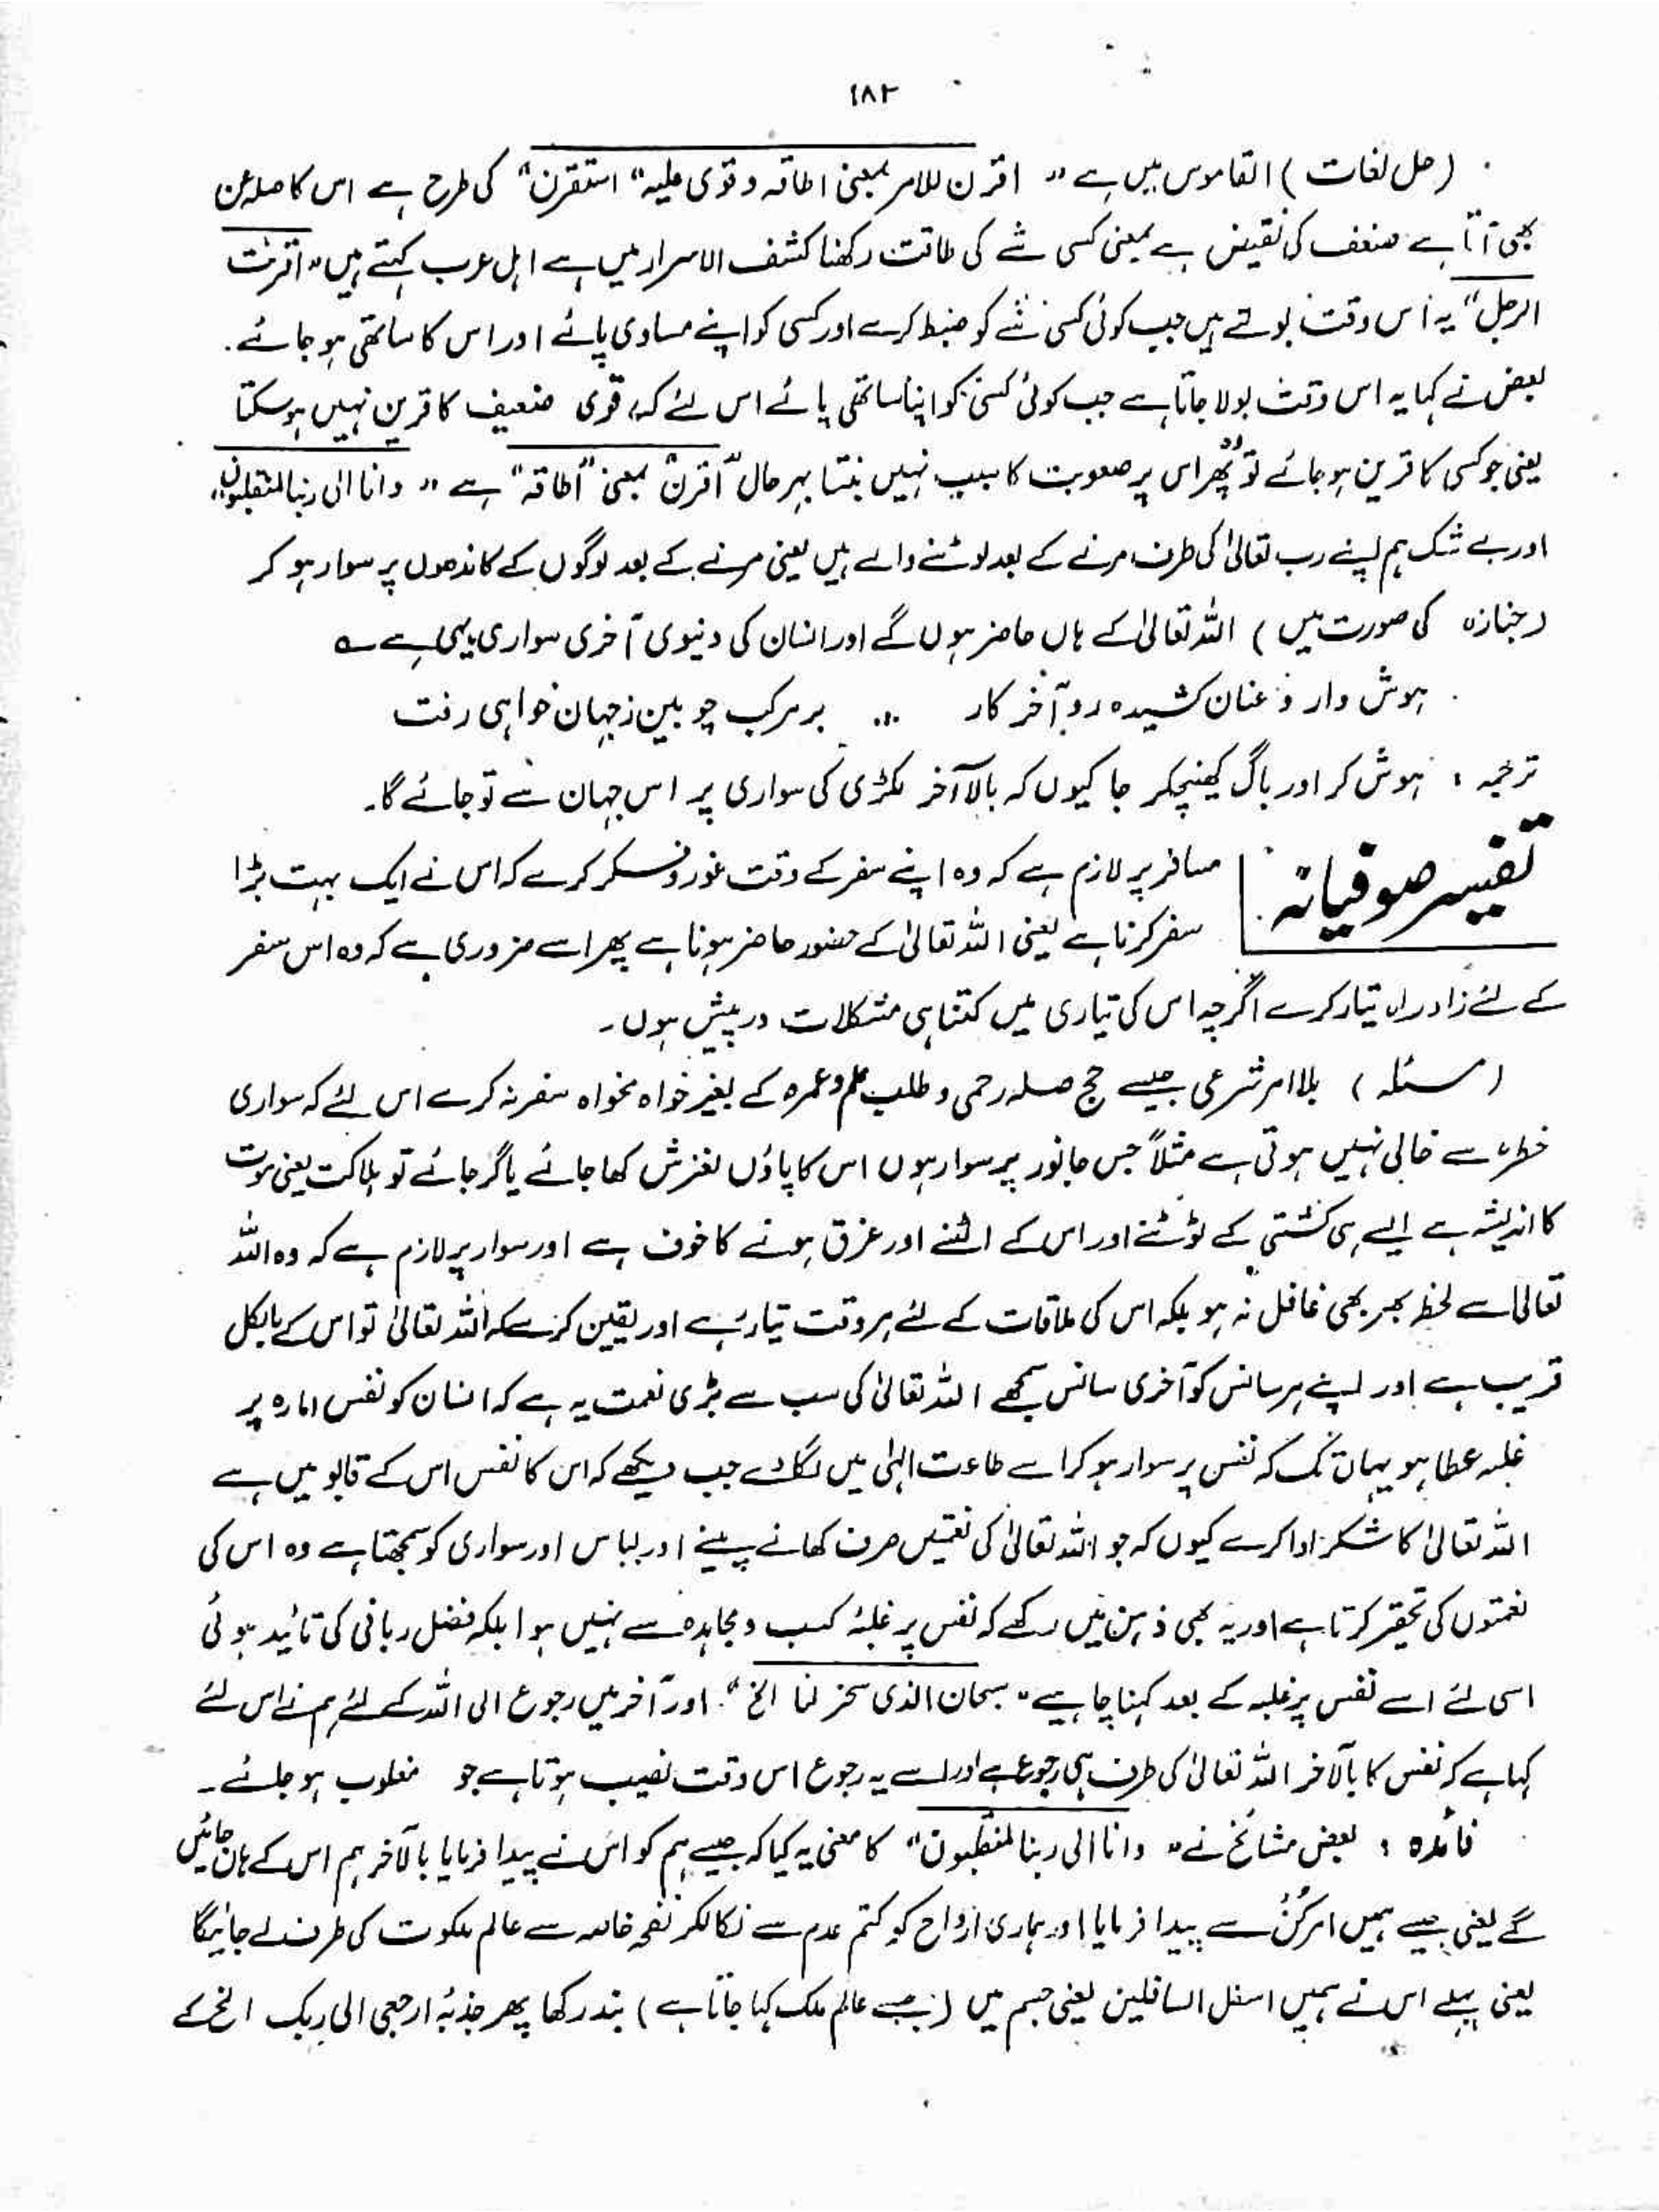 ۱۸۲
(حل لغات) القاموس میں ہے " اقرن للامر بمعنی اطاقہ وقوی علیہ" استقرن" کی طرح ہے اس کا صلہ عن
بھی آتا ہے ضعف کی نقیض ہے بمعنی کسی شے کی طاقت رکھنا کشف الاسرار میں ہے اہل عرب کہتے ہیں " اقرنت
الرجل" یہ اس وقت بولتے ہیں جب کوئی کسی شے کو ضبط کرے اور کسی کو اپنے مساوی پائے اور اس کا ساتھی ہو جائے۔
بعض نے کہا یہ اس وقت بولا جاتا ہے جب کوئی کسی کو اپنا ساتھی پائے اس لئے کہ قوی ضعیف کا قرین نہیں ہو سکتا
یعنی جو کسی کا قرین ہو جائے تو پھر اس پر صعوبت کا سبب نہیں بنتا بہر حال "اقرن" بمعنی "اطاقہ" ہے " وانا الی ربنا لمنقلبون"
اور بے شک ہم اپنے رب تعالیٰ کی طرف مرنے کے بعد لوٹنے والے ہیں یعنی مرنے کے بعد لوگوں کے کاندھوں پر سوار ہو کر
(جنازہ کی صورت میں) اللہ تعالیٰ کے ہاں حاضر ہوں گے اور انسان کی دنیوی آخری سواری یہی ہے ؎
ہوش دار و عنان کشیدہ رو آخر کار ... بر مرکب چوبین ز جہان خواہی رفت
ترجمہ : ہوش کر اور باگ کھینچکر جا کیوں کہ بالآخر لکڑی کی سواری پر اس جہان سے تو جائے گا۔
تفسیر صوفیانہ
مسافر پر لازم ہے کہ وہ اپنے سفر کے وقت غور و فکر کرے کہ اس نے ایک بہت بڑا
سفر کرنا ہے یعنی اللہ تعالیٰ کے حضور حاضر ہونا ہے پھر اسے ضروری ہے کہ وہ اس سفر
کے لئے زاد راہ تیار کرے اگرچہ اس کی تیاری میں کتنا ہی مشکلات درپیش ہوں۔
(مسئلہ) بلا امر شرعی جیسے حج صلہ رحمی و طلب علم و عمرہ کے بغیر خواہ مخواہ سفر نہ کرے اس لئے کہ سواری
خطرہ سے خالی نہیں ہوتی ہے مثلاً جس جانور پر سوار ہوں اس کا پاؤں لغزش کھا جائے یا گر جائے تو ہلاکت یعنی موت
کا اندیشہ ہے ایسے ہی کشتی کے ٹوٹنے اور اس کے الٹنے اور غرق ہونے کا خوف ہے اور سوار پر لازم ہے کہ وہ اللہ
تعالیٰ سے لحظہ بھر بھی غافل نہ ہو بلکہ اس کی ملاقات کے لئے ہر وقت تیار رہے اور یقین کرے کہ اللہ تعالیٰ تو اس کے بالکل
قریب ہے اور اپنے ہر سانس کو آخری سانس سمجھے اللہ تعالیٰ کی سب سے بڑی نعمت یہ ہے کہ انسان کو نفس امارہ پر
غلبہ عطا ہو یہاں تک کہ نفس پر سوار ہو کر اسے طاعت الٰہی میں لگا دے جب دیکھے کہ اس کا نفس اس کے قابو میں ہے
اللہ تعالیٰ کا شکر ادا کرے کیوں کہ جو اللہ تعالیٰ کی نعمتیں صرف کھانے پینے اور لباس اور سواری کو سمجھتا ہے وہ اس کی
نعمتوں کی تحقیر کرتا ہے اور یہ بھی ذہن میں رکھے کہ نفس پر غلبۂ کسب و مجاہدہ سے نہیں ہوا بلکہ فضل ربانی کی تائید ہوئی
اسی لئے اسے نفس پر غلبہ کے بعد کہنا چاہیے " سبحان الذی سخر لنا الخ" ۔ اور آخر میں رجوع الی اللہ کے لئے ہم نے اس لئے
کہا ہے کہ نفس کا بالآخر اللہ تعالیٰ کی طرف ہی رجوع ہے اور اسے یہ رجوع اس وقت نصیب ہوتا ہے جو مغلوب ہو جائے۔
فائدہ : بعض مشائخ نے " وانا الی ربنا لمنقلبون" کا معنی یہ کیا کہ جیسے ہم کو اس نے پیدا فرمایا بالآخر ہم اس کے ہاں جائیں
گے یعنی جیسے ہمیں امر کُنْ سے پیدا فرمایا اور ہماری ارواح کو کتم عدم سے نکالکر نفحہ خاصہ سے عالم ملکوت کی طرف لے جائیگا
یعنی پہلے اس نے ہمیں اسفل السافلین یعنی جسم میں (جسے عالم ملک کہا جاتا ہے) بند رکھا پھر جذبۂ ارجعی الی ربک الخ کے